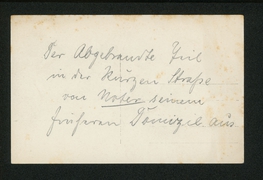 Der Abgebrandte Teil
in der Kurzen Straße
von Vater seinem
früheren Domizel aus